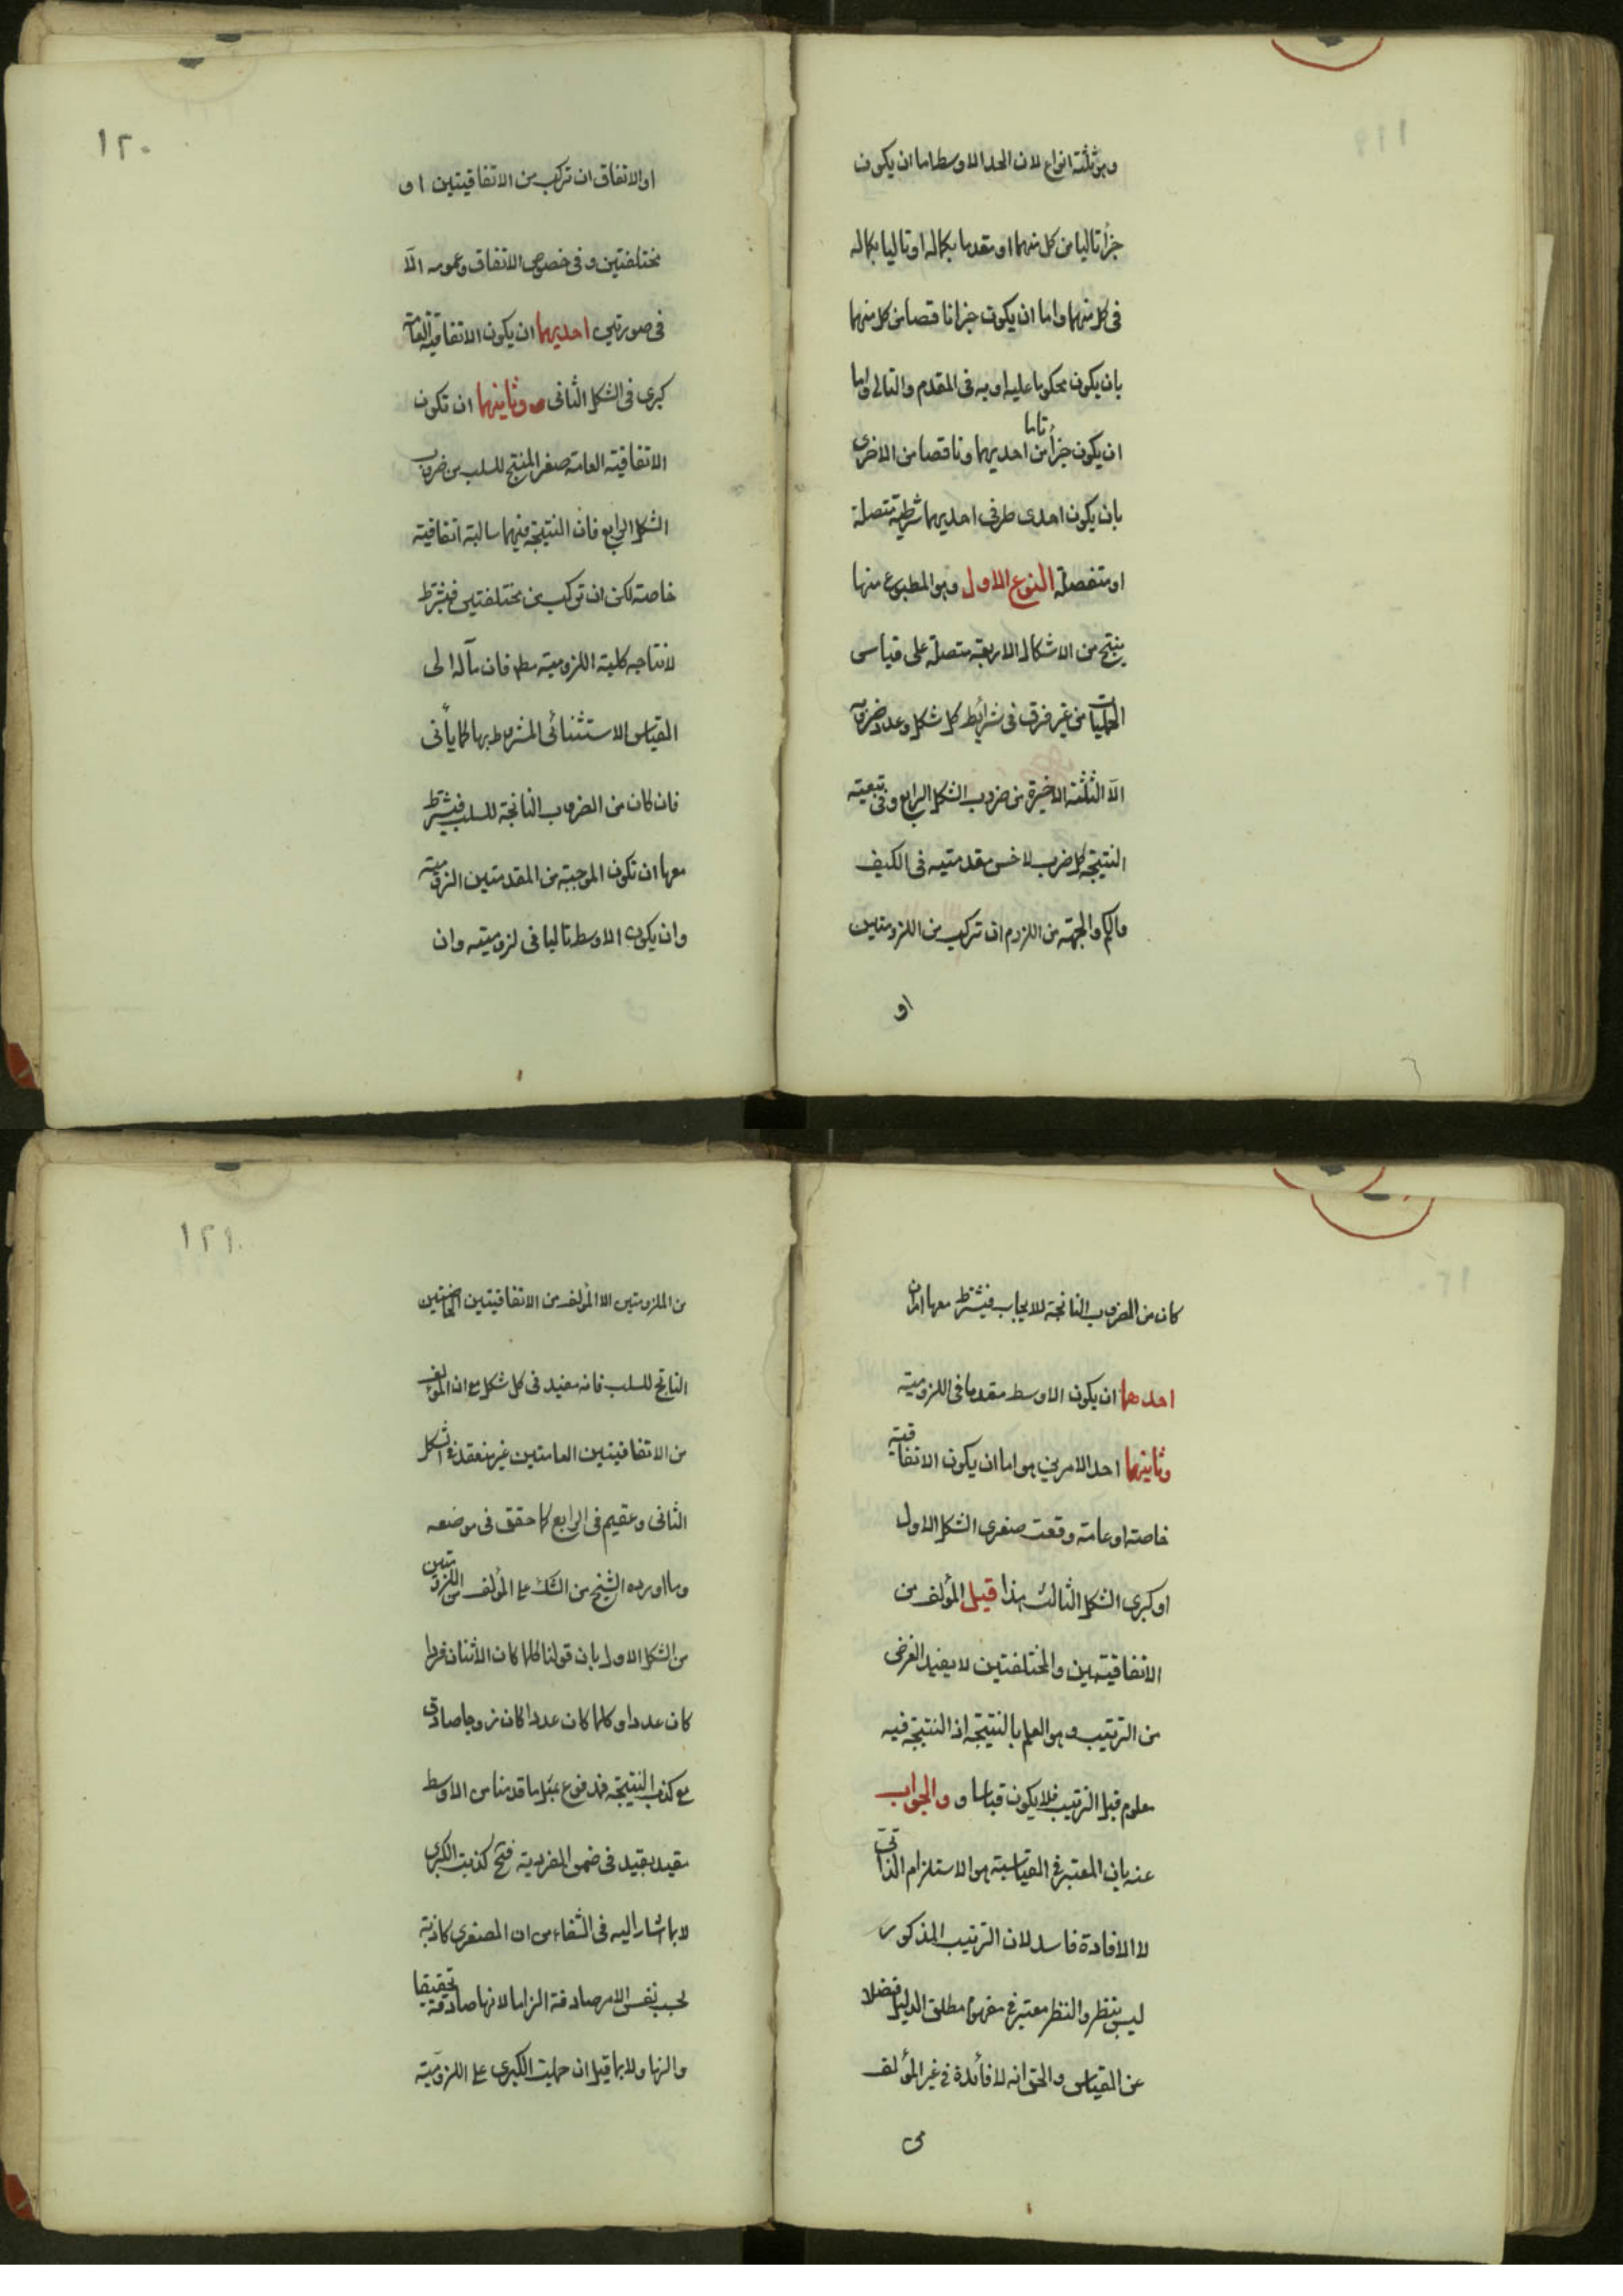 وهو ثلثة انواع لان الحد الاوسط اما ان يكون
جزأ تاليا من كل منهما او مقدما بكماله او تاليا بكماله
فى كل منهما واما ان يكون جزا ناقصا من كل منهما
بان يكون محكوما عليه او به فى المقدم والتالى واما
ان يكون جزأ تاما من احديهما وناقصا من الاخرى
بان يكون احدى طرفى احديهما شرطية متصلة
او منفصلة النوع الاول وهو المطبوع منها
ينتج من الاشكال الاربعة متصلة على قياس
الحمليات من غير فرق فى شرائط كل شكل وعدد ضروبه
الا الثلثة الاخيرة من ضروب الشكل الرابع وفى تبعية
النتيجة كل ضرب لاخس مقدمتيه فى الكيف
والكم والجهة من اللزوم ان تركب من اللزوميتين
او
١٢٠
او الاتفاق ان تركب من الاتفاقيتين او
مختلفتين و فى خصوص الاتفاق وعمومه الا
فى صورتين احديهما ان يكون الاتفاقية العامة
كبرى فى الشكل الثانى وثانيتهما ان تكون
الاتفاقية العامة صغرى المنتج للسلب من ضروب
الشكل الرابع فان النتيجة فيهما سالبة اتفاقية
خاصة لكن ان تركب من مختلفتين فيشترط
لانتاجه كلية اللزومية مطلقا فان مآله الى
القياس الاستثنائى المشروط بها كما يأتى
فان كان من الضروب الناتجة للسلب فيشترط
معها ان تكون الموجبة من المقدمتين لزومية
وان يكون الاوسط تاليا فى لزوميته وان
كان من الضروب الناتجة للايجاب فيشترط معها امران
احدهما ان يكون الاوسط مقدما فى اللزومية
وثانيهما احد الامرين هو اما ان يكون الاتفاقية
خاصة او عامة وقعت صغرى الشكل الاول
او كبرى الشكل الثالث هذا قيل المؤلف من
الاتفاقيتين والمختلفتين لا يفيد الغرض
من الترتيب وهو العلم بالنتيجة اذ النتيجة فيه
معلوم قبل الترتيب فلا يكون قياسا و والجواب
عنه بان المعتبر فى القياسية هو الاستلزام الذاتى
لا الافادة فاسد لان الترتيب المذكور
ليس بنظر والنظر معتبر فى مفهوم مطلق الدليل فضلا
عن القياس والحق انه لا فائدة فى غير المؤلف
من
١٢١
من اللزوميتين الا المؤلف من الاتفاقيتين الخاصتين
الناتج للسلب فانه مفيد فى كل شكل مع ان المؤلف
من الاتفاقيتين العامتين غير منعقد فى الشكل
الثانى وعقيم فى الرابع كما حقق فى موضعه
وما اورده الشيخ من الشك على المؤلف من اللزوميتين
من الشكل الاول بان قولنا كلما كان الاثنان فردا
كان عددا وكلما كان عددا كان زوجا صادق
مع كذب النتيجة فمدفوع بمثل ما قدمنا من الاوسط
مقيد بقيد فى ضمن الفردية فح كذبت الكبرى
لا بما اشار اليه فى الشفاء من ان الصغرى كاذبة
بحسب نفس الامر صادقة الزاما لانها صادقة تحقيقا
والزاما ولا بما قيل ان حملت الكبرى على اللزومية